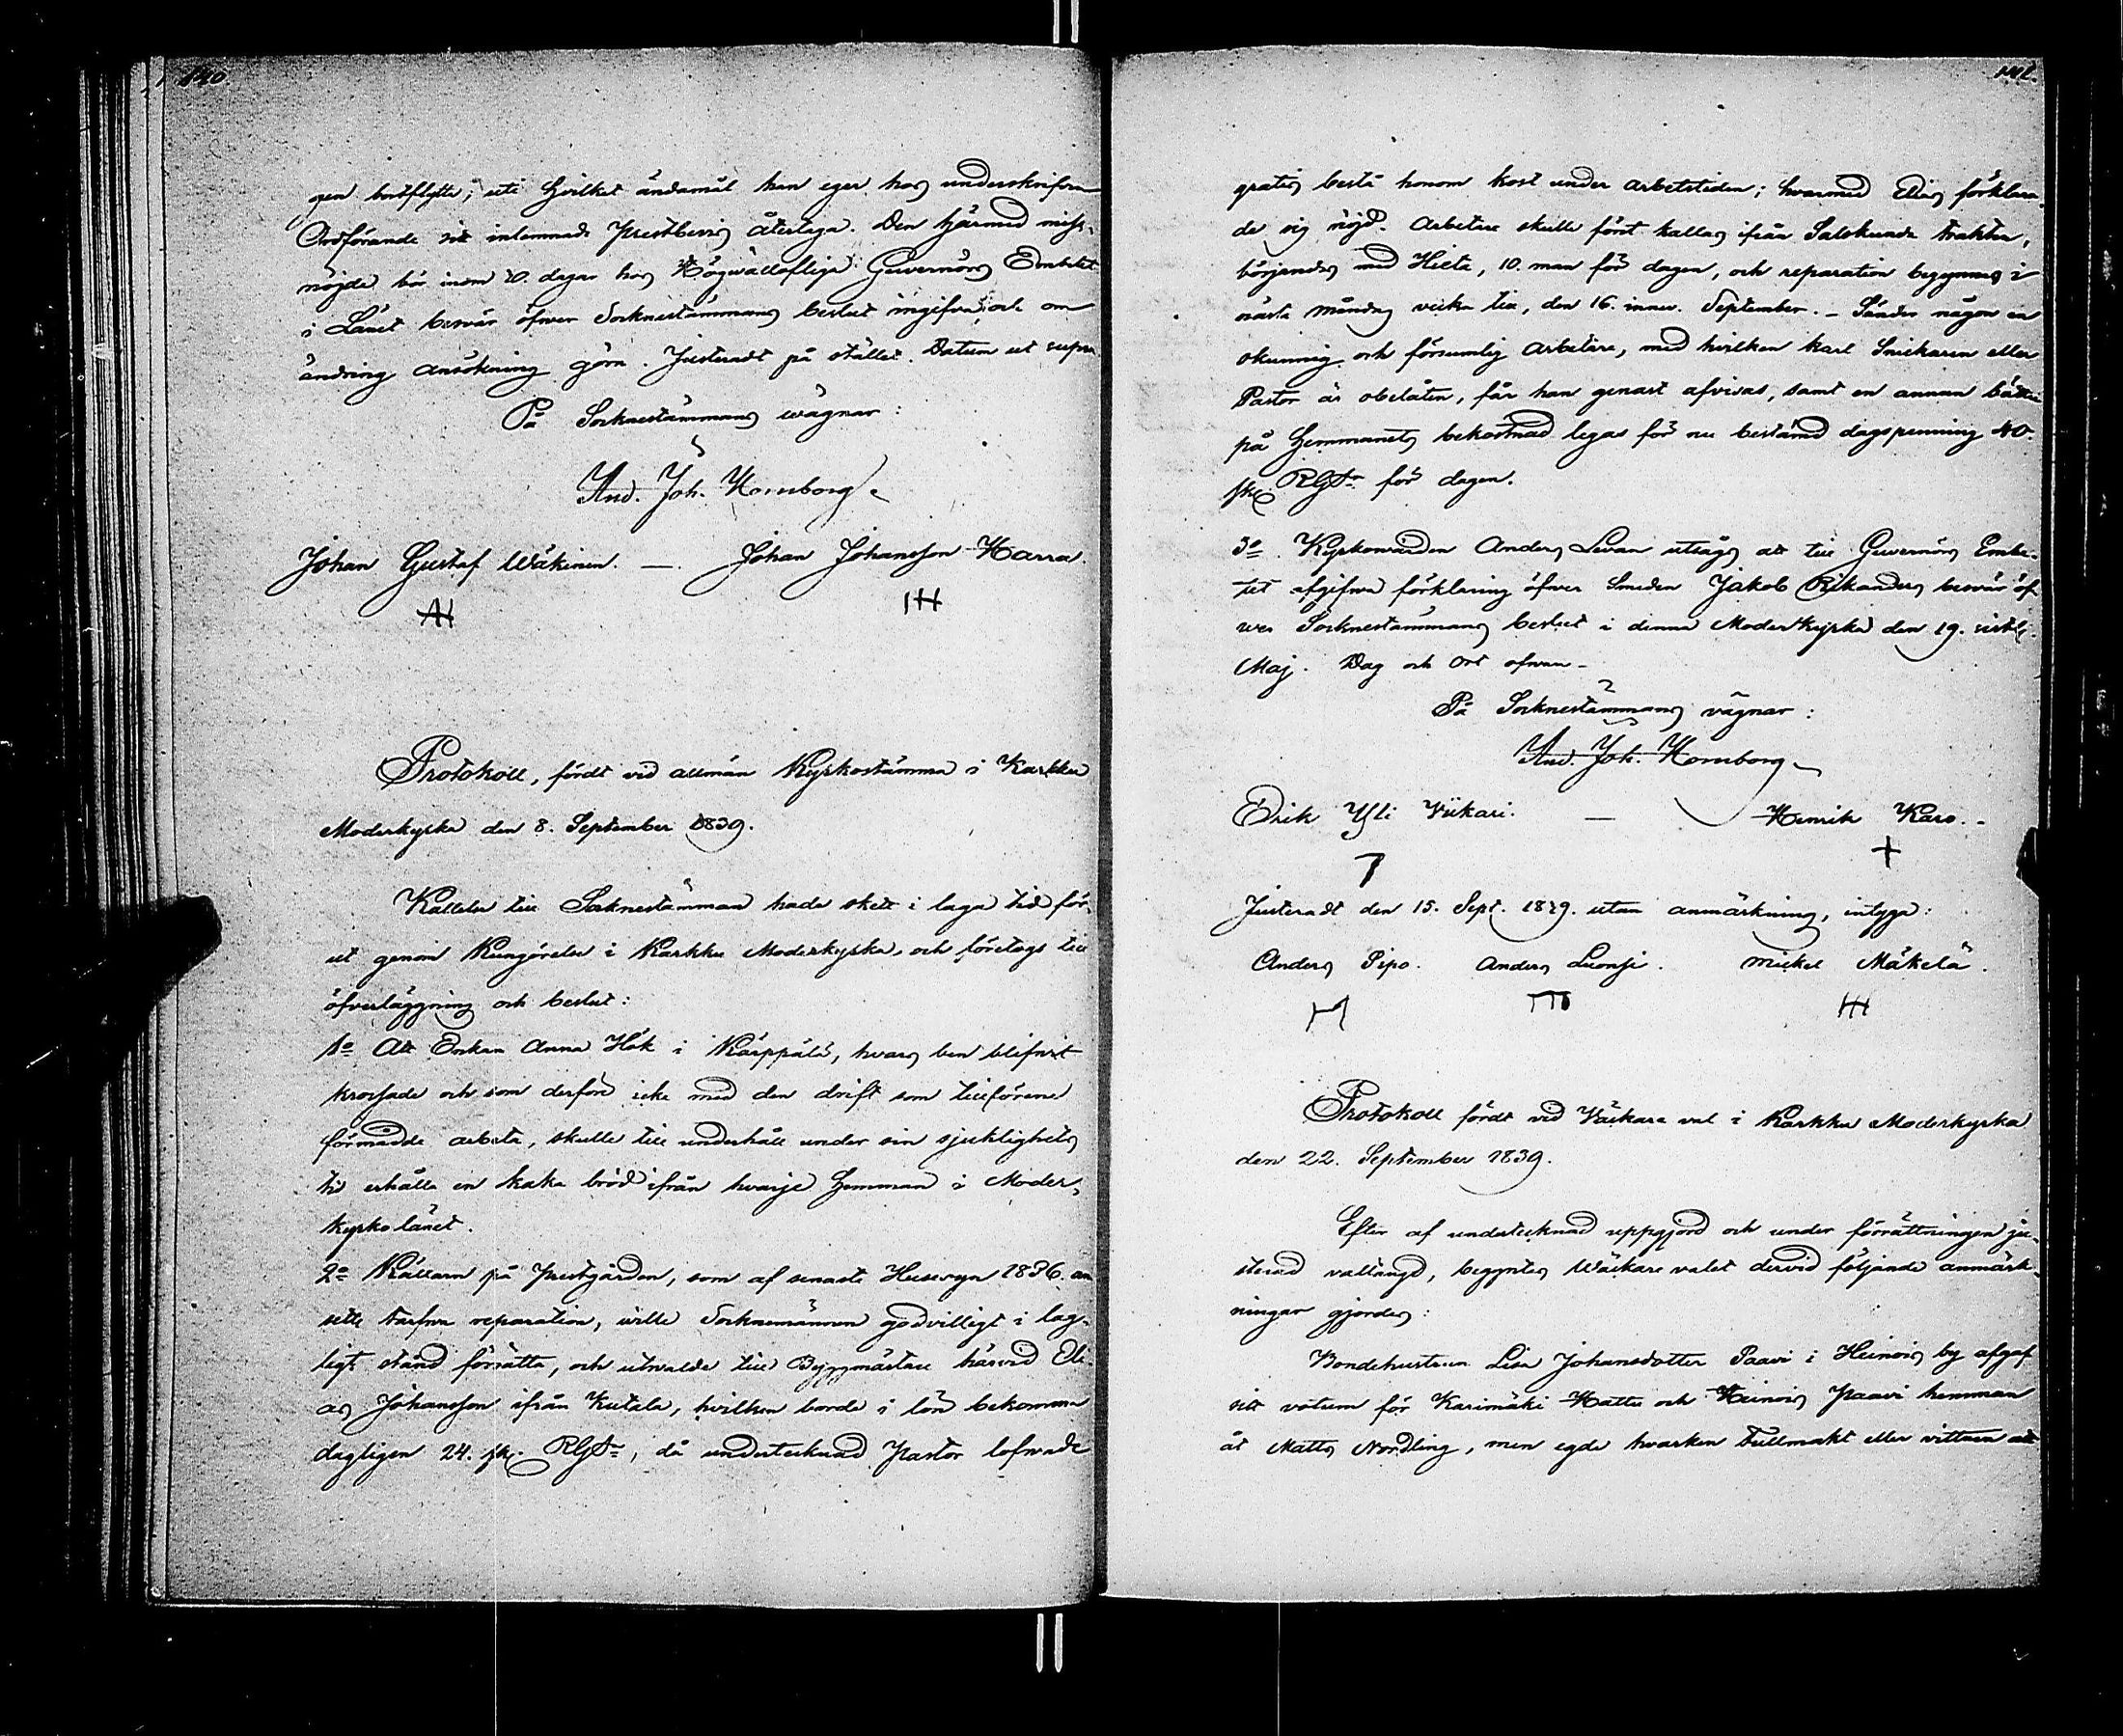 140.
gen bortflytta; uti hvilket ändamål han eger hos underskrifven
Ordförande sit inlemnade Prestbevis återtaga. Den hjärmed miss-
nöjde bör inom 30. dagar hos Högwällofliga Guvernörs Embetet
i Länet besvär öfver Socknestämmans beslut ingifva, och om
ändring ansökning göra. Justeradt på stället. Datum ut supra
På Socknestämmans wägnar:
And. Joh. Hornborg.
Johan Gustaf Wäkinen. — Johan Johansson Harra.
Protokoll, fördt vid allmän Kyrkostämma i Karkku
Moderkyrka den 8. September 1839.
Kallelse till Socknestämman hade skett i laga tid för-
ut genom Kungörelse i Karkku Moderkyrka, och företogs till
öfverläggning och beslut:
1o Att Enkan Anna Hök i Kärppälä, hvars ben blifvit
krossade och som derföre icke med den drift som tillförene
förmådde arbeta, skulle till underhåll under sin sjuklighets
tid erhålla en kaka bröd ifrån hvarje Hemman i Moder-
kyrko länet.
2o Källarn på Prestgården, som af senaste Husesyn 1836. an
setts tarfva reparation, wille Socknemännen godvilligt i lag-
ligt stånd försätta, och utwalde till Byggmästare härvid Eli
as Johansson ifrån Kutala, hvilken borde i lön bekomma
dagligen 24. sk. RGds, då undertecknad Pastor lofvade
141.
gratis bestå honom kost under arbetstiden; hvarmed Elias förklara-
de sig nöjd. Arbetare skulle först kallas ifrån Salokunda trakten,
börjandes med Hieta, 10. man för dagen, och reparation begynnas i
nästa Måndag vecka till, den 16. innev. September. – Sänder någon en
okunnig och försumlig Arbetare, med hvilken karl Snickaren eller
Pastor är obelåten, får han genast afvisas, samt en annan bättre
på Hemmanets bekostnad legas för nu bestämd dagspenning 40.
sk. RGds för dagen.
3o Kyrkovärden Anders Levan utsågs att till Guvernörs Embe-
tet afgifva förklaring öfver Smeden Jakob Rikanders besvär öf
ver Socknestämmans beslut i denna Moderkyrka den 19. sistl.
Maj. Dag och Ort ofvan –
På Socknestämmans vägnar:
And. Joh. Hornborg
Erik Yli Viikari. — Henrik Karo. –
Justeradt den 15. Sept. 1839. utan anmärkning, intyga:
Anders Pipo. Anders Luonsi. Mickel Mäkelä.
Protokoll fördt vid Väckare val i Karkku Moderkyrka
den 22. September 1839.
Efter af undertecknad uppgjord och under förrättningen ju-
sterad vallängd, begyntes Wäckare valet dervid följande anmärk-
ningar gjordes:
Bondehustrun Lisa Johansdotter Paavi i Heinois by afgaf
sitt votum för Karimäki Hattu och Heinois Paavi hemman
åt Matts Nordling, men egde hvarken fullmakt eller vittnen att